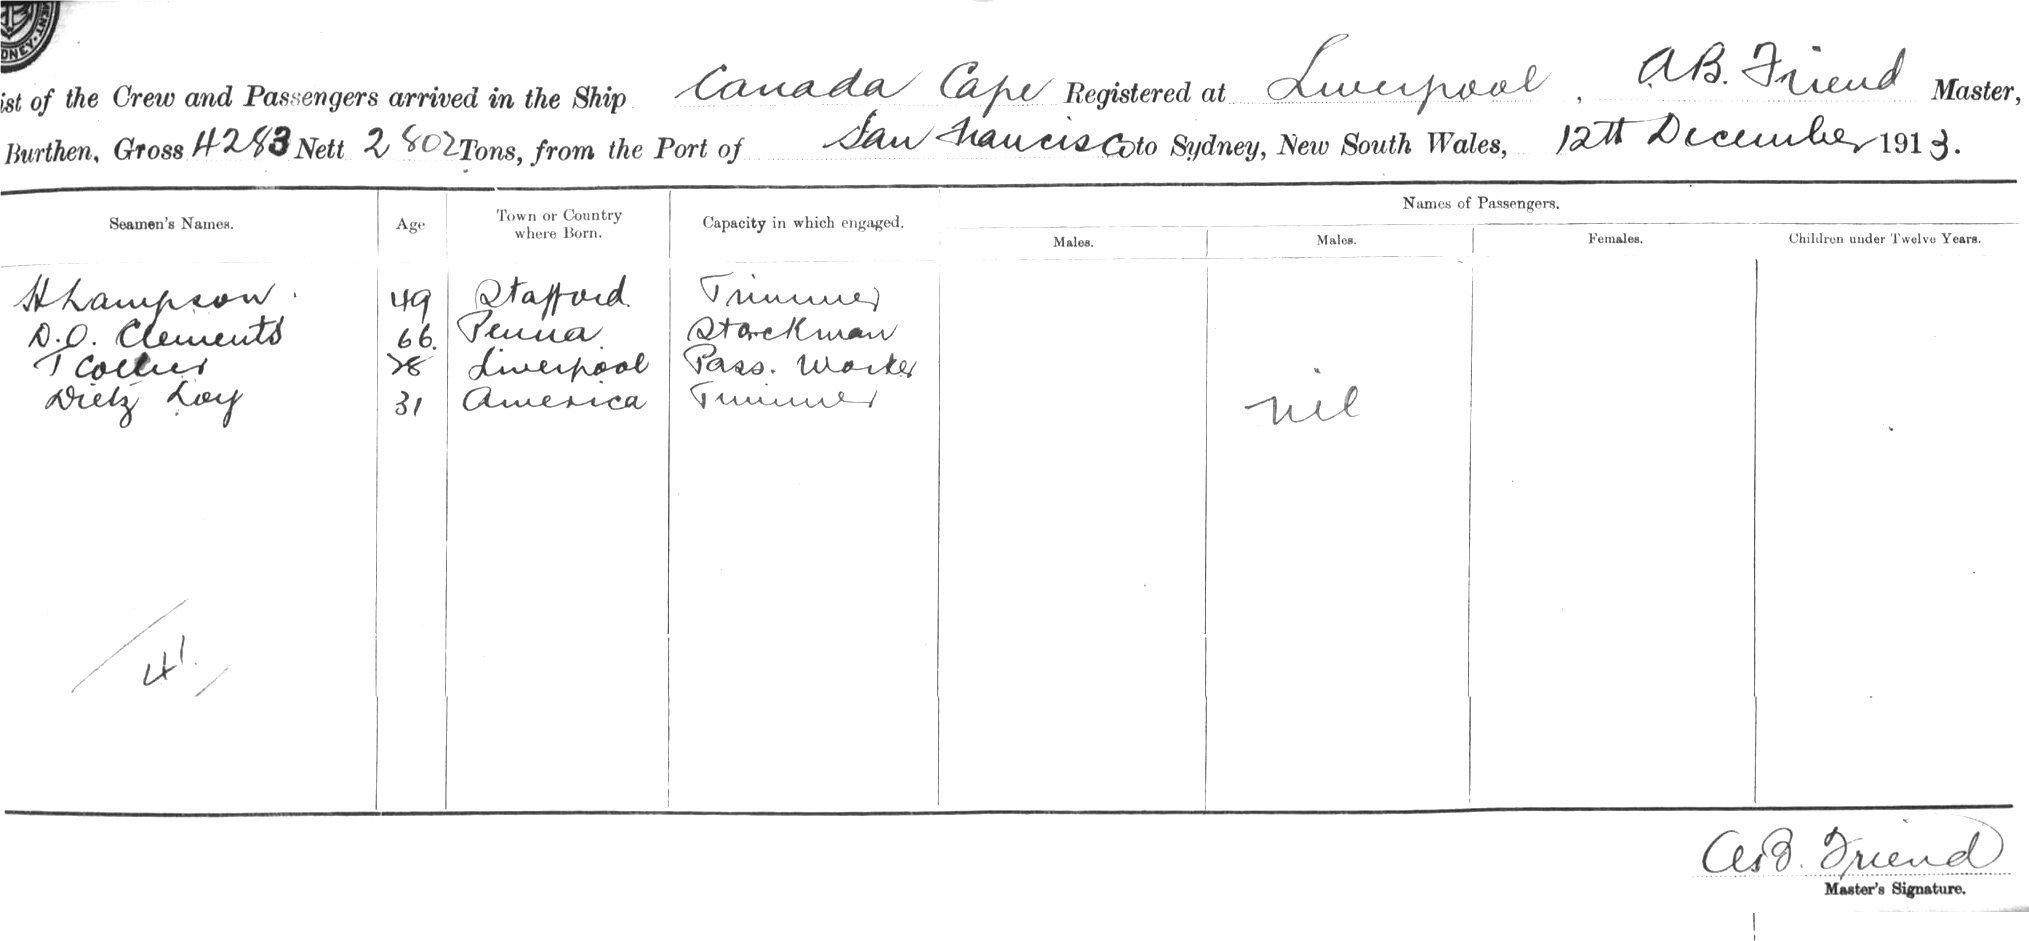 ist of the Crew and Passengers arrived in the Ship Canada Cape Registered at Liverpool, A.B. Friend Master,
Burthen, Gross 4283 Nett 2802 Tons, from the Port of San Francisco to Sydney, New South Wales, 12th December 1913.
Names of Passengers.
Seamen's Names. Age Town or Country where Born. Capacity in which engaged. Males. Males. Females. Children under Twelve Years.
H Lampson 49 Stafford Trimmer
D.O. Clements 66. Penna Storekman
T Collier 28 Liverpool Pass. Worker
Dietz Loy 31 America Trimmer
nil
41.
A.B. Friend
Master's Signature.